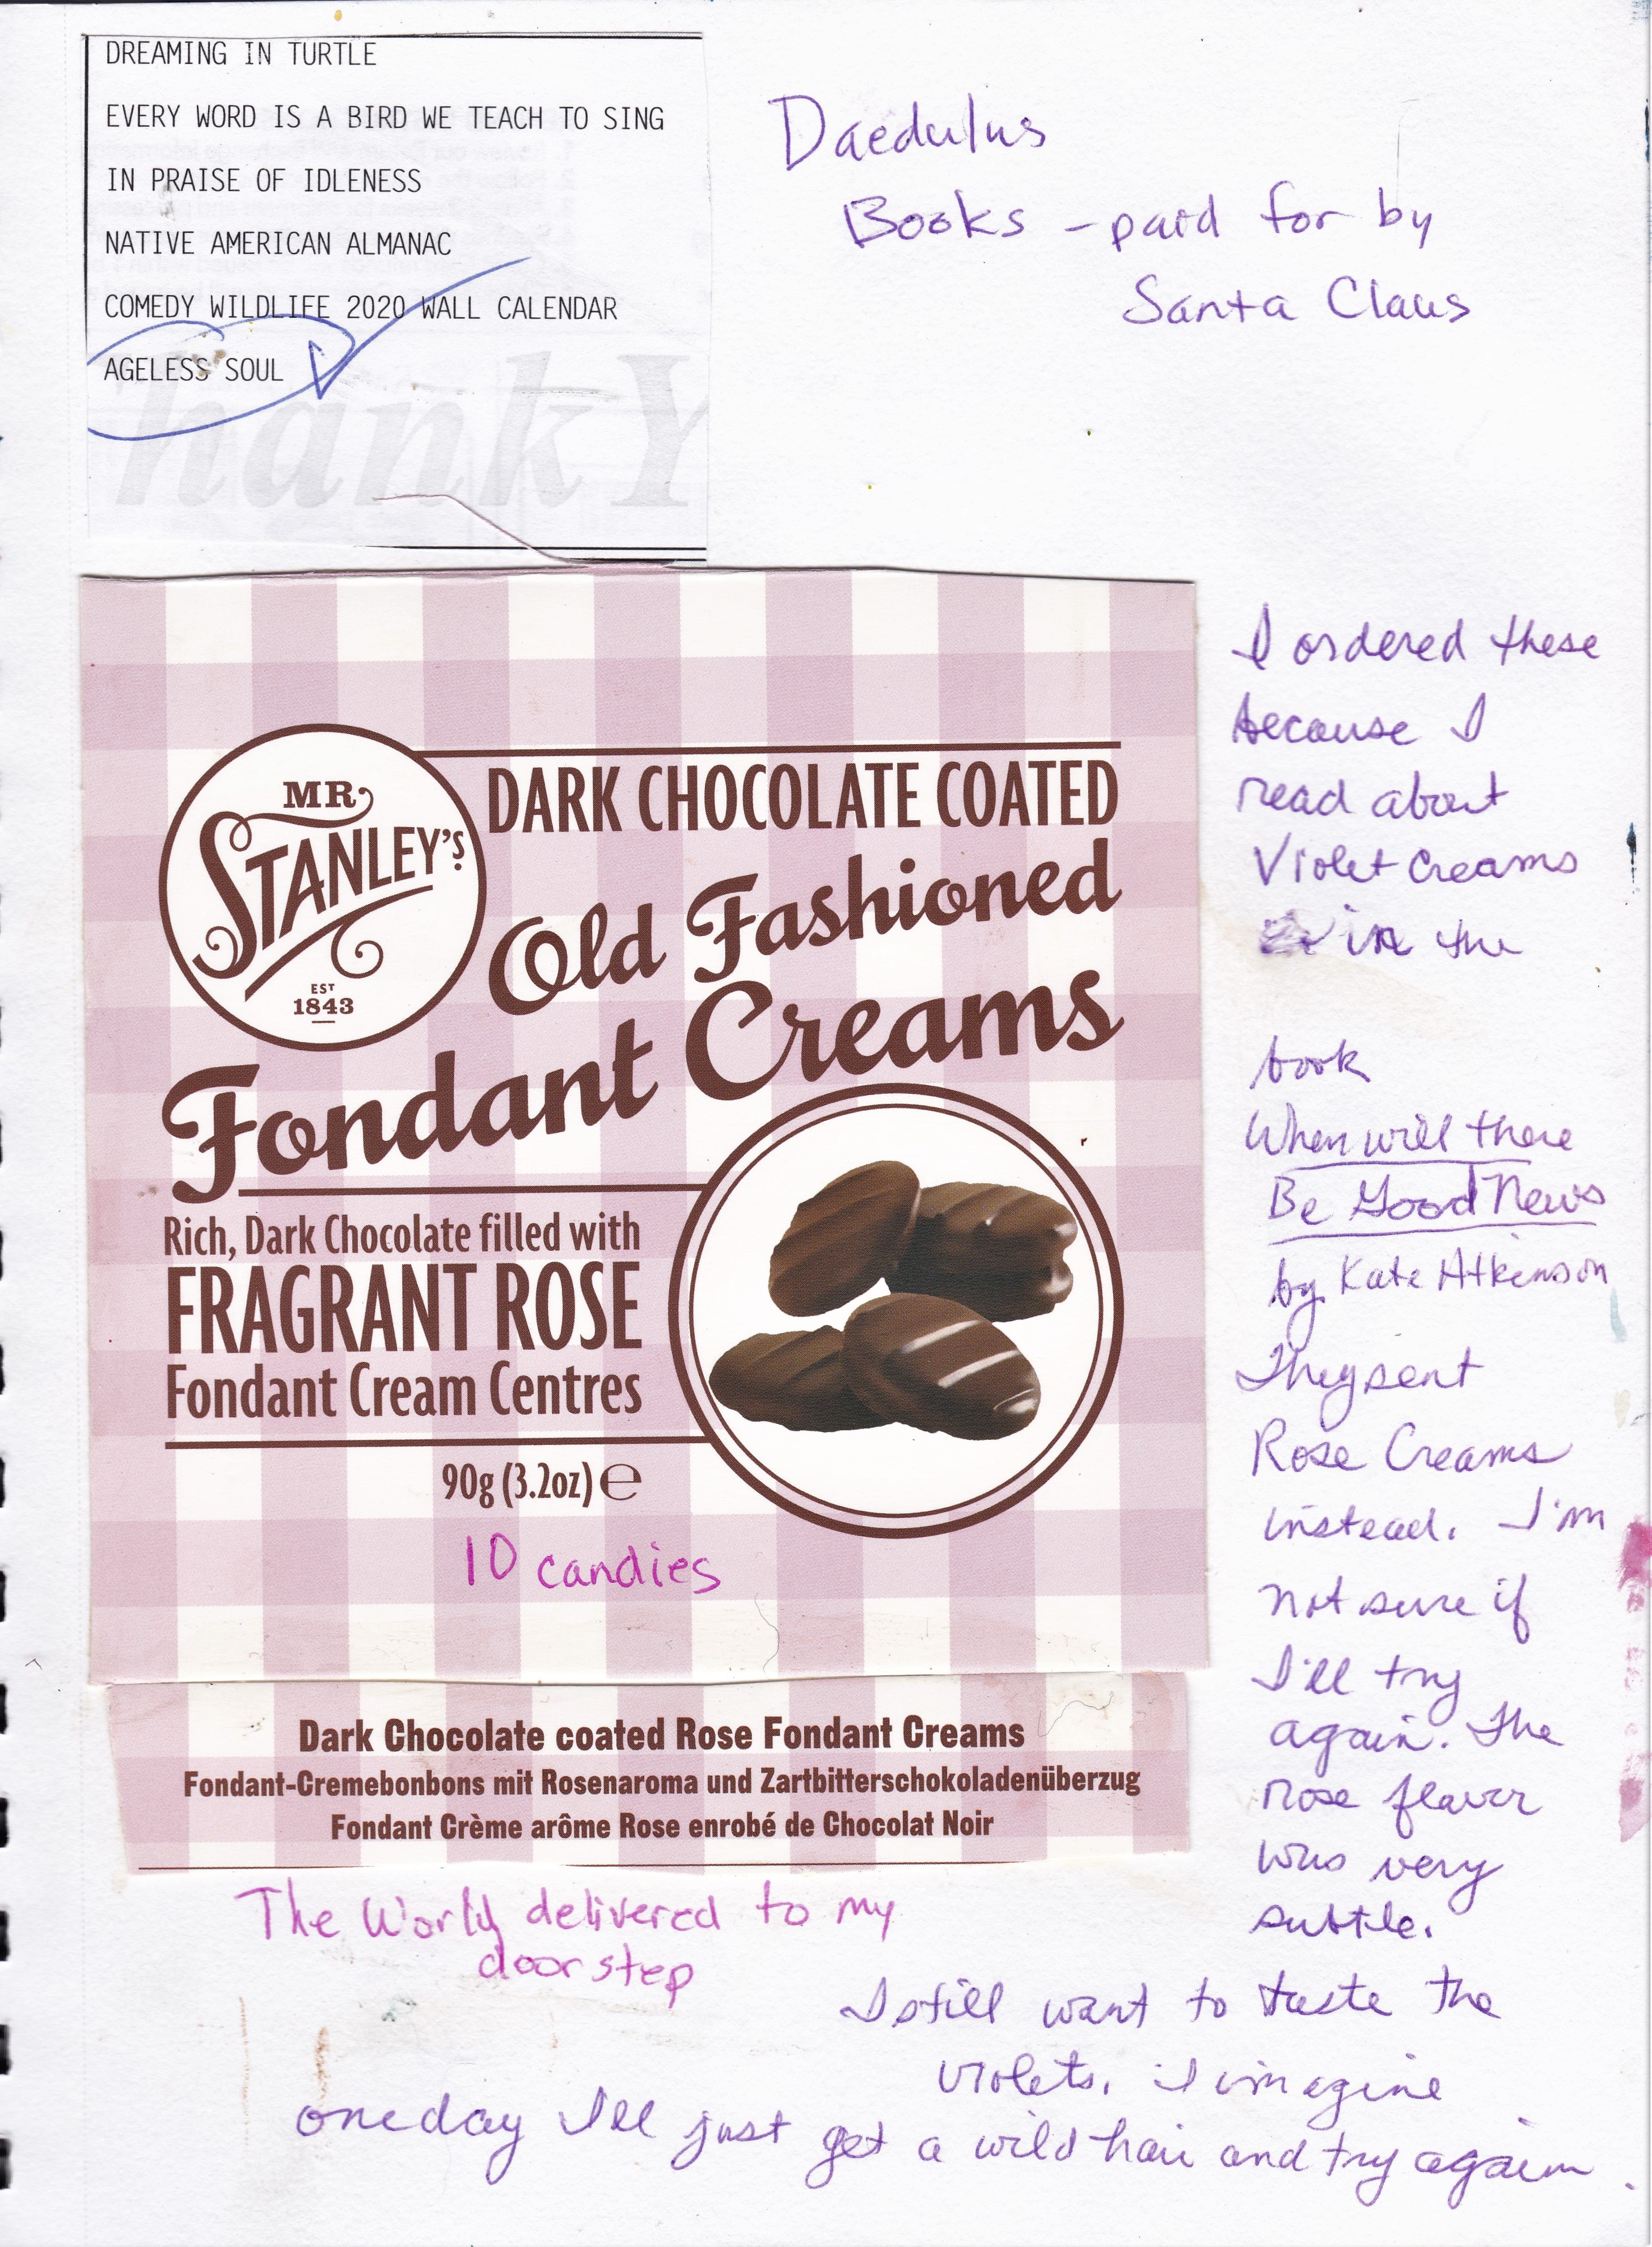 DREAMING IN TURTLE
EVERY WORD IS A BIRD WE TEACH TO SING
IN PRAISE OF IDLENESS
NATIVE AMERICAN ALMANAC
COMEDY WILDLIFE 2020 WALL CALENDAR
AGELESS SOUL
hankY
Daedulus
Books - paid for by
Santa Claus
MR
STANLEY'S
EST
1843
DARK CHOCOLATE COATED
Old Fashioned
Fondant Creams
Rich, Dark Chocolate filled with
FRAGRANT ROSE
Fondant Cream Centres
90g (3.2oz) ℮
10 candies
Dark Chocolate coated Rose Fondant Creams
Fondant-Cremebonbons mit Rosenaroma und Zartbitterschokoladenüberzug
Fondant Crème arôme Rose enrobé de Chocolat Noir
The World delivered to my
doorstep
I ordered these
because I
read about
Violet Creams
in the
book
When will there
Be Good News
by Kate Atkinson
They sent
Rose Creams
instead. I'm
not sure if
I'll try
again. The
rose flavor
was very
subtle.
I still want to taste the
violets. I imagine
one day I'll just get a wild hair and try again.